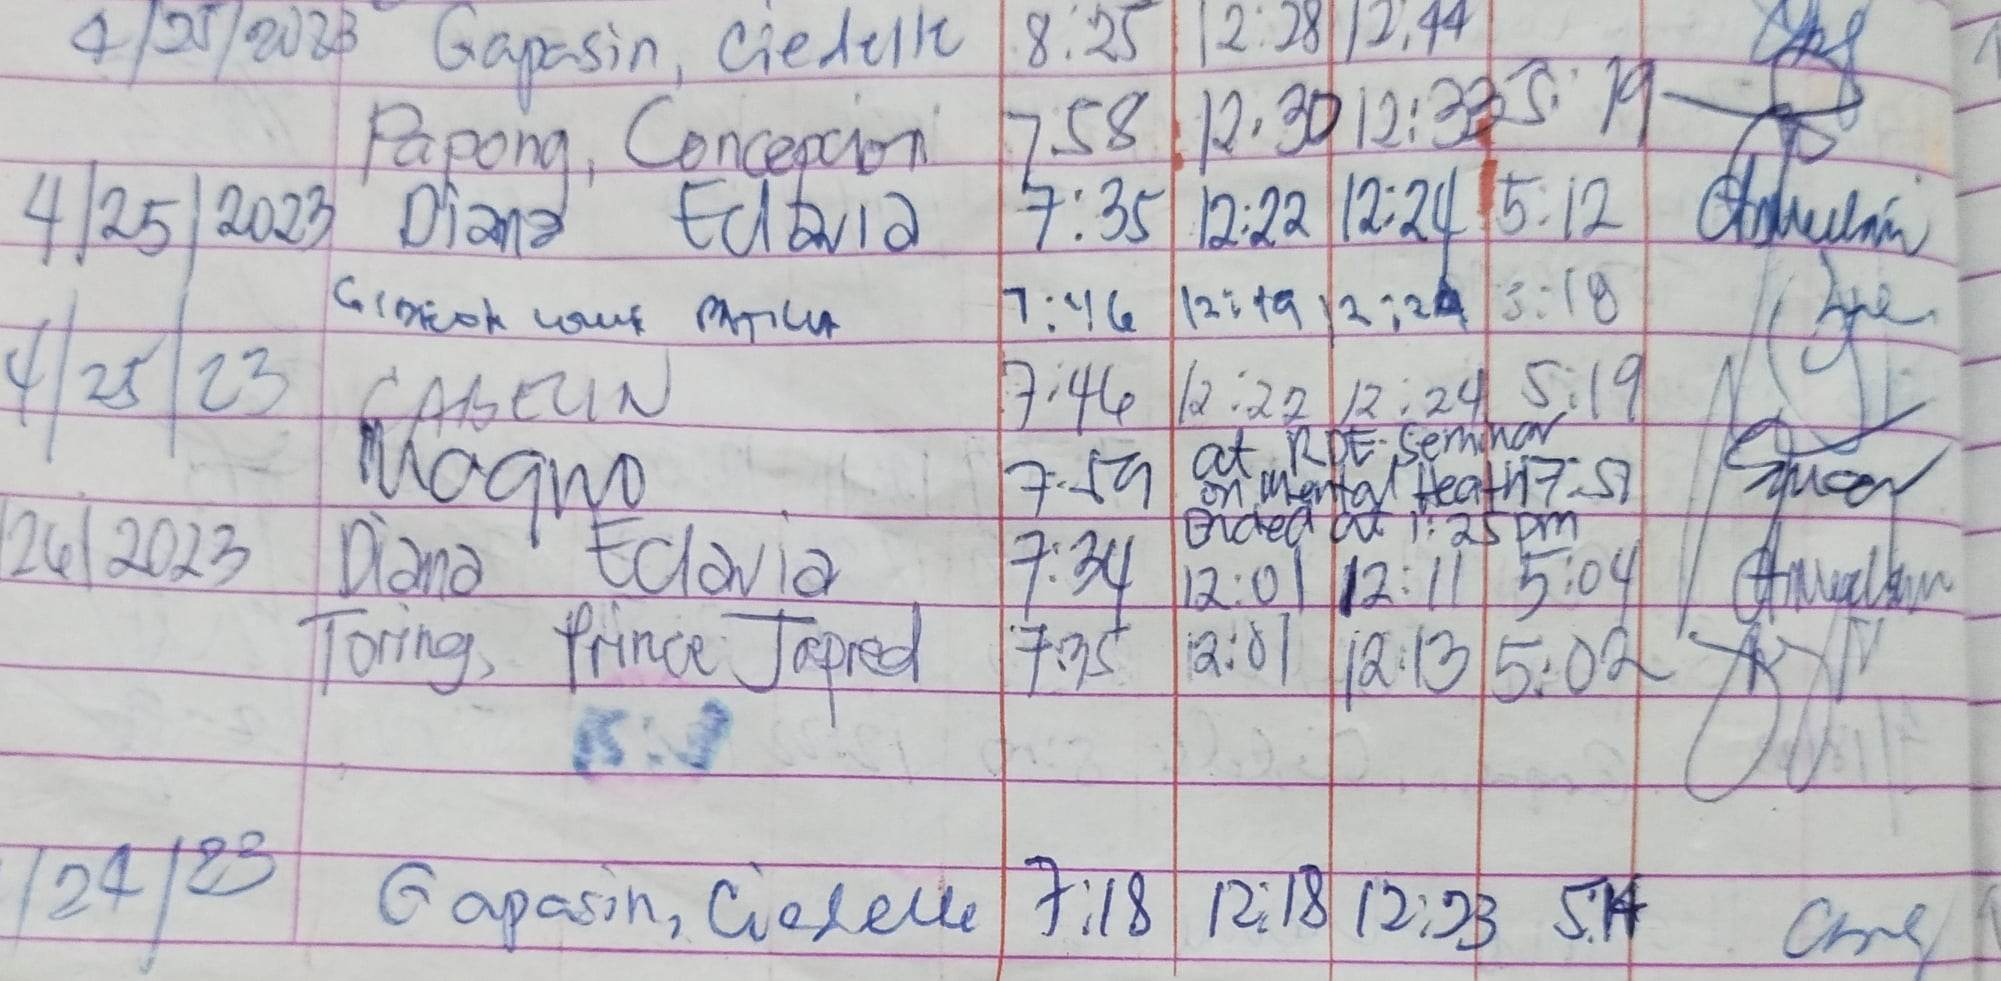 4/25/2023 Gapasin, Ciedelle 8:25 12:28 12:44
Papong, Concepcion 7:58 12:30 12:33 5:19
4/25/2023 Diana Eclavia 7:35 12:22 12:24 5:12
7:46 12:19 12:24 5:18
4/25/23 CABELIN 7:46 12:22 12:24 5:19
Magno 7:59 at RDE Seminar
on Mental Heath 7:51
Ended at 1:25 pm
26/2023 Diana Eclavia 7:34 12:01 12:11 5:04
Toring, Prince Japred 7:35 12:01 12:13 5:02
/24/23 Gapasin, Ciedelle 7:18 12:18 12:23 5:14